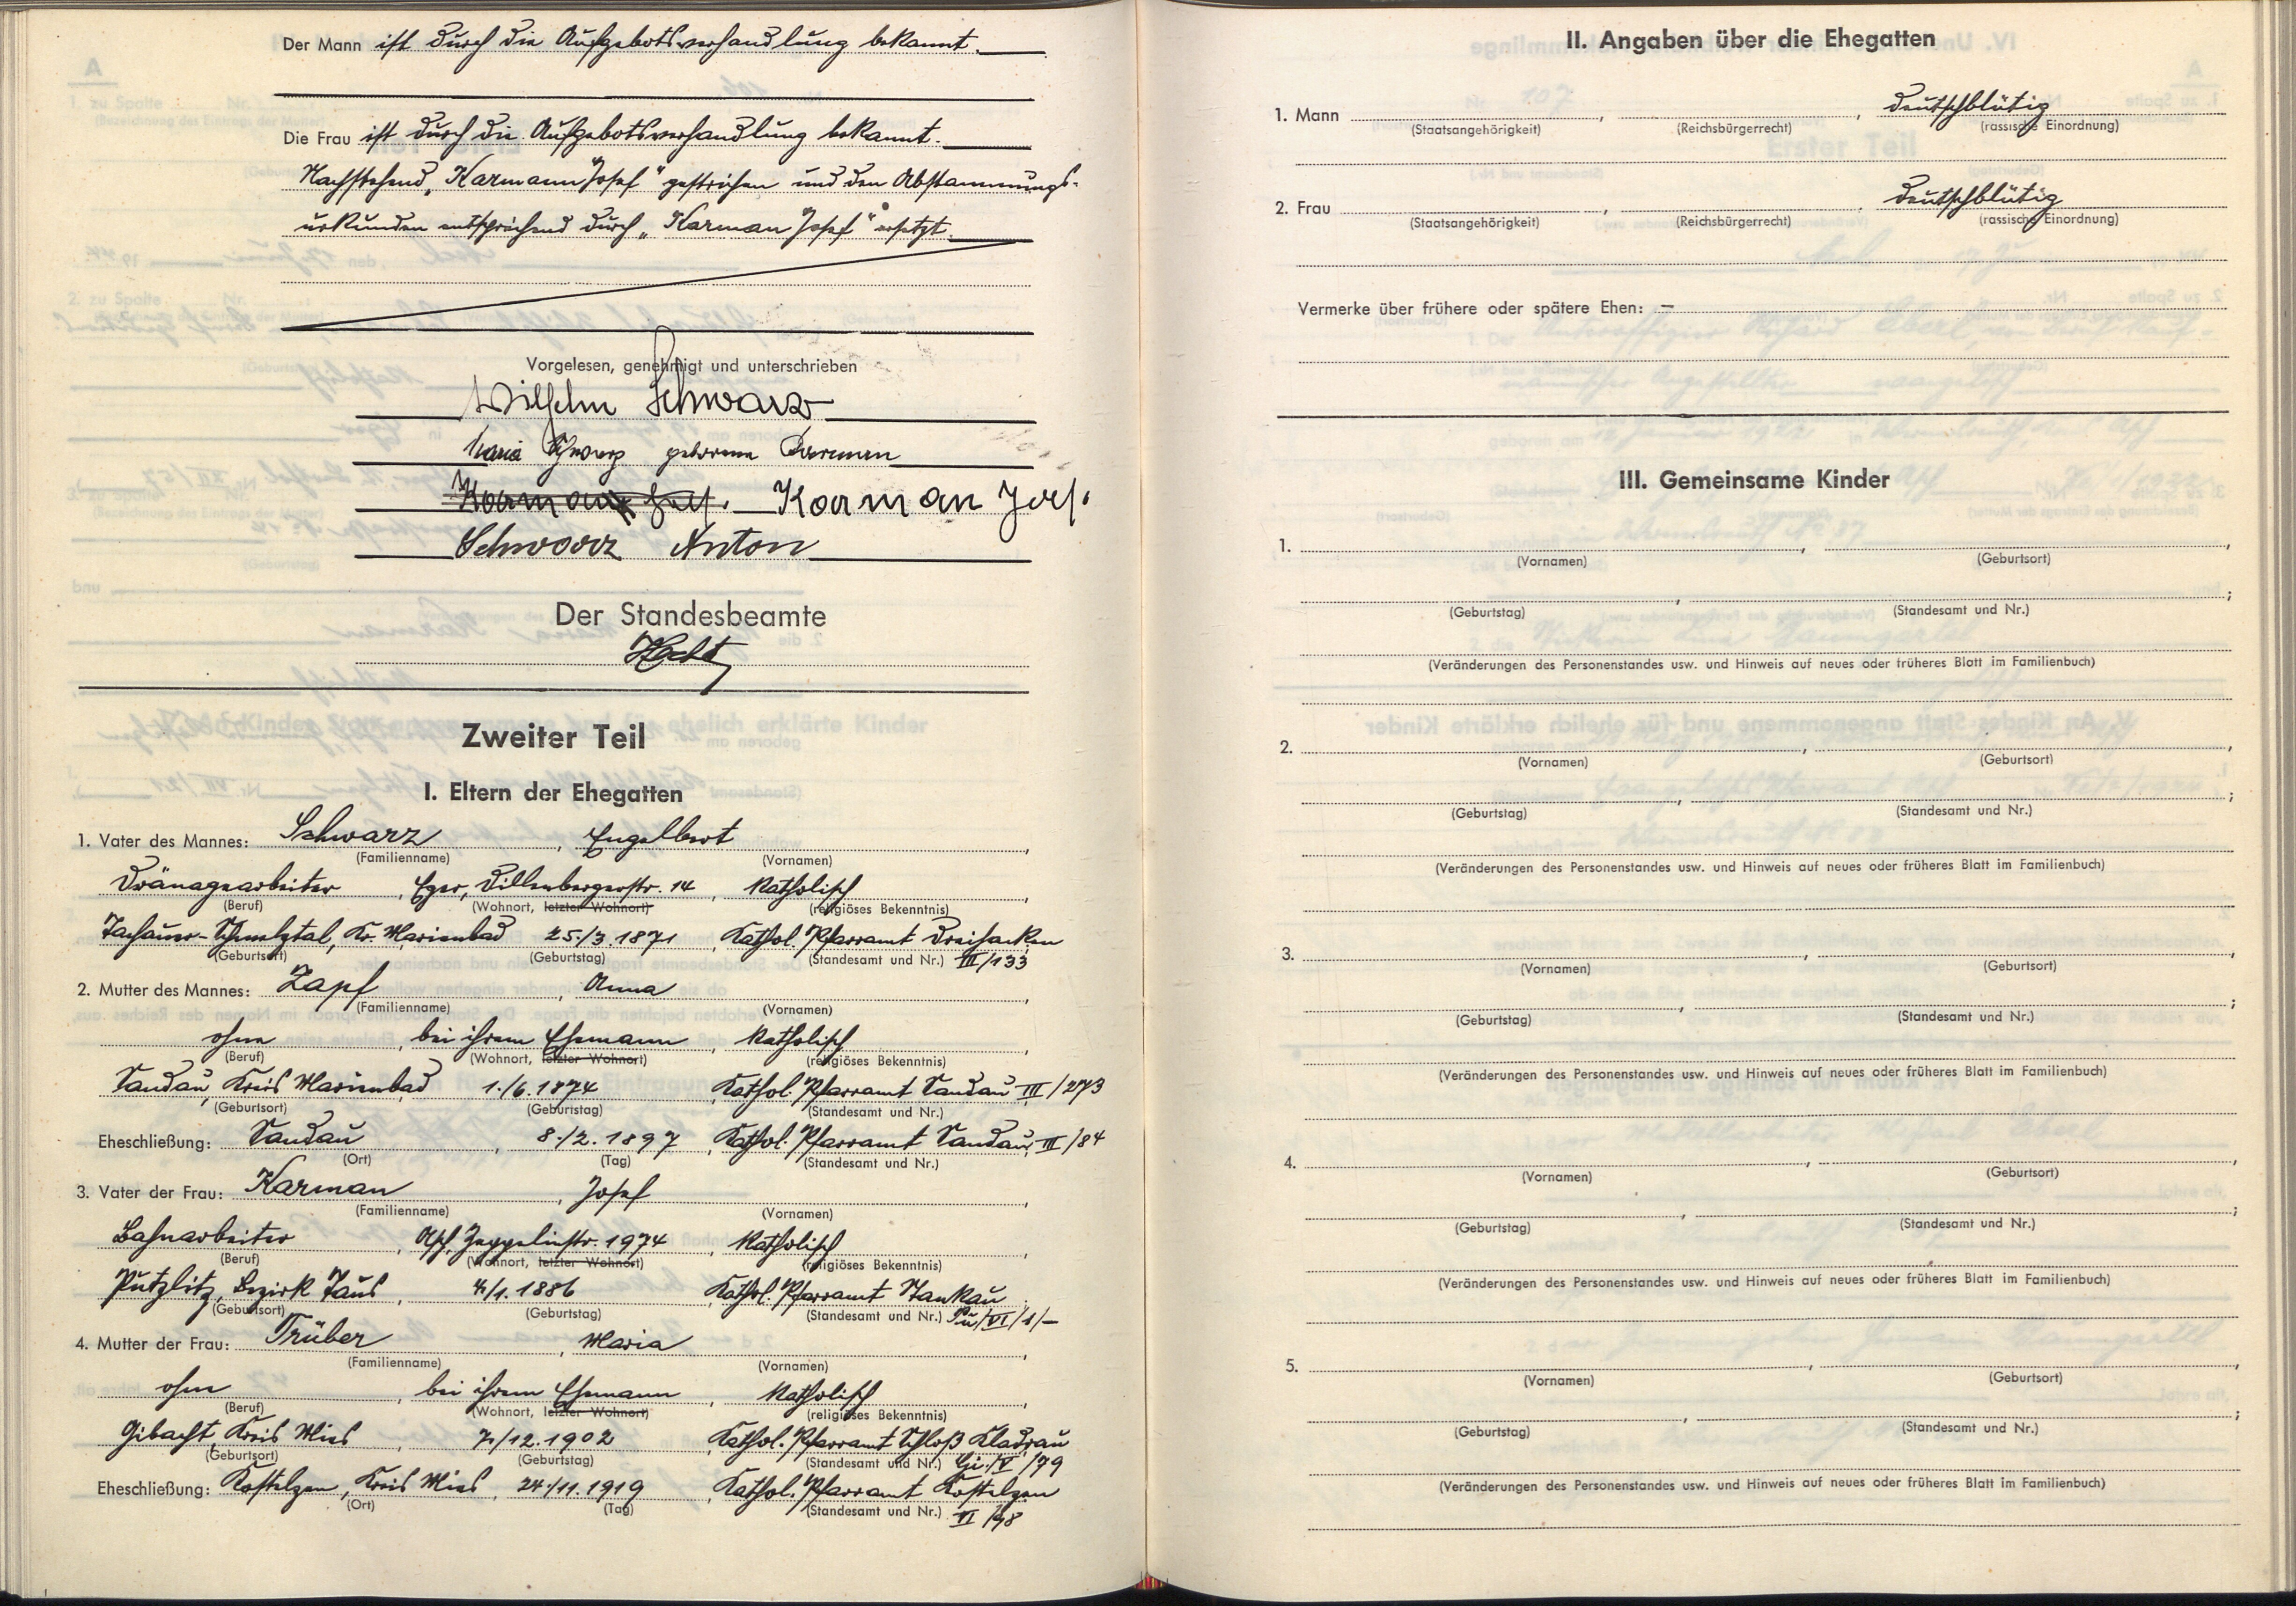 Der Mann ist durch die Aufgebotsverhandlung bekannt.
Die Frau ist durch die Aufgebotsverhandlung bekannt.
Nachstehend „Karmann Josef" gestrichen und den Abstammungs-
urkunden entsprechend durch „Karman Josef" ersetzt.
Vorgelesen, genehmigt und unterschrieben
Wilhelm Schwarz
Maria Schwarz geborene Karman
Karmann Josef. Karman Josef.
Schwarz Anton
Der Standesbeamte
Zweiter Teil
I. Eltern der Ehegatten
1. Vater des Mannes: Schwarz, Engelbert
(Familienname) (Vornamen)
Dränagearbeiter, Eger, Dillenbergerstr. 14, katholisch,
(Beruf) (Wohnort, letzter Wohnort) (religiöses Bekenntnis)
Tachauer-Schmelztal, Kr. Marienbad 25./3.1871, Kathol. Pfarramt Dreihacken
(Geburtsort) (Geburtstag) (Standesamt und Nr.) III/133
2. Mutter des Mannes: Zapf, Anna,
(Familienname) (Vornamen)
ohne, bei ihrem Ehemann, katholisch,
(Beruf) (Wohnort, letzter Wohnort) (religiöses Bekenntnis)
Sandau, Kreis Marienbad 1./6.1874 Kathol. Pfarramt Sandau III/273
(Geburtsort) (Geburtstag) (Standesamt und Nr.)
Eheschließung: Sandau, 8./2.1897, Kathol. Pfarramt Sandau, III/84
(Ort) (Tag) (Standesamt und Nr.)
3. Vater der Frau: Karman, Josef,
(Familienname) (Vornamen)
Bahnarbeiter, Asch, Zeppelinstr. 1974, katholisch,
(Beruf) (Wohnort, letzter Wohnort) (religiöses Bekenntnis)
Putzlitz, Bezirk Taus, 4/1.1886 Kathol. Pfarramt Stankau
(Geburtsort) (Geburtstag) (Standesamt und Nr.) Pu/VI/1/-
4. Mutter der Frau: Trüber, Maria,
(Familienname) (Vornamen)
ohne, bei ihrem Ehemann, katholisch,
(Beruf) (Wohnort, letzter Wohnort) (religiöses Bekenntnis)
Gibacht, Kreis Mies, 7./12.1902, Kathol. Pfarramt Schloß Kladrau
(Geburtsort) (Geburtstag) (Standesamt und Nr.) Gi./V/79
Eheschließung: Kostelzen, Kreis Mies, 24./11.1919, Kathol. Pfarramt Kostelzen
(Ort) (Tag) (Standesamt und Nr.) VI
II. Angaben über die Ehegatten
1. Mann, , deutschblütig
(Staatsangehörigkeit) (Reichsbürgerrecht) (rassische Einordnung)
2. Frau, , deutschblütig
(Staatsangehörigkeit) (Reichsbürgerrecht) (rassische Einordnung)
Vermerke über frühere oder spätere Ehen: —
III. Gemeinsame Kinder
1.
(Vornamen) (Geburtsort)
(Geburtstag) (Standesamt und Nr.)
(Veränderungen des Personenstandes usw. und Hinweis auf neues oder früheres Blatt im Familienbuch)
2.
(Vornamen) (Geburtsort)
(Geburtstag) (Standesamt und Nr.)
(Veränderungen des Personenstandes usw. und Hinweis auf neues oder früheres Blatt im Familienbuch)
3.
(Vornamen) (Geburtsort)
(Geburtstag) (Standesamt und Nr.)
(Veränderungen des Personenstandes usw. und Hinweis auf neues oder früheres Blatt im Familienbuch)
4.
(Vornamen) (Geburtsort)
(Geburtstag) (Standesamt und Nr.)
(Veränderungen des Personenstandes usw. und Hinweis auf neues oder früheres Blatt im Familienbuch)
5.
(Vornamen) (Geburtsort)
(Geburtstag) (Standesamt und Nr.)
(Veränderungen des Personenstandes usw. und Hinweis auf neues oder früheres Blatt im Familienbuch)